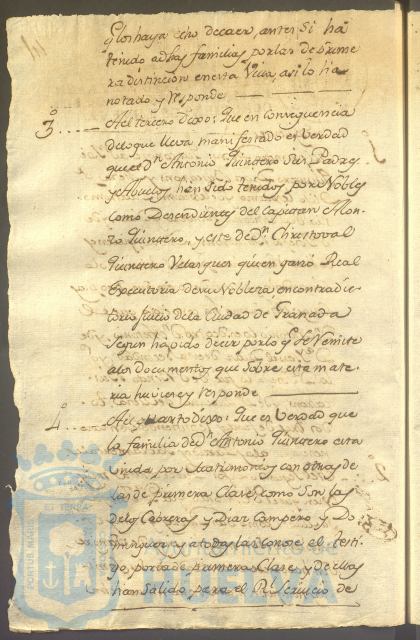 q.e los haya echo decaer, antes si ha
tenido a d.has familias por las de prime
ra distincion en esta Villa, asi lo ha
notado y responde
3.o Al tercero dixo: Que en conseguencia
de lo que lleva manifestado es verdad
que el d.n Antonio Quintero sus Padres
y Abuelos, han sido tenidos por Nobles
como Desendientes del Capitan Alon-
zo Quintero, y este de D.n Christoval
Quintero Velasques quien ganó Real
Executoria de su Nobleza en contradic-
torio Juicio de la Ciudad de Granada
segun ha oido decir por lo q.e se remite
a los documentos que sobre esta mate-
ria huviere y responde
4.o Al quarto dixo: Que es verdad que
la familia de D.n Antonio Quintero esta
unida por Matrimonios con otras de
las de primera Clase, como son las
de los Cabreras, y Diaz Campero, y Do
minguez, a todas las conose el testi-
go, por la de primera Clase, y de ellas
han salido para el R.l servicio de
PORTUS MARIS ET TERRAE
Ayuntamiento de
HUELVA